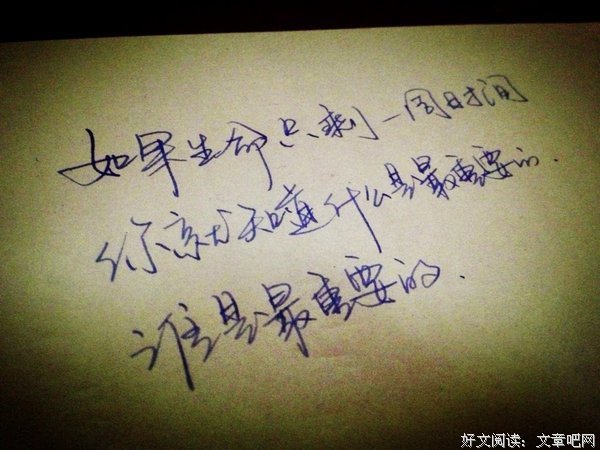 如果生命只剩一周时间
你就知道什么是最重要的.
谁是最重要的.
好文阅读：文章吧网